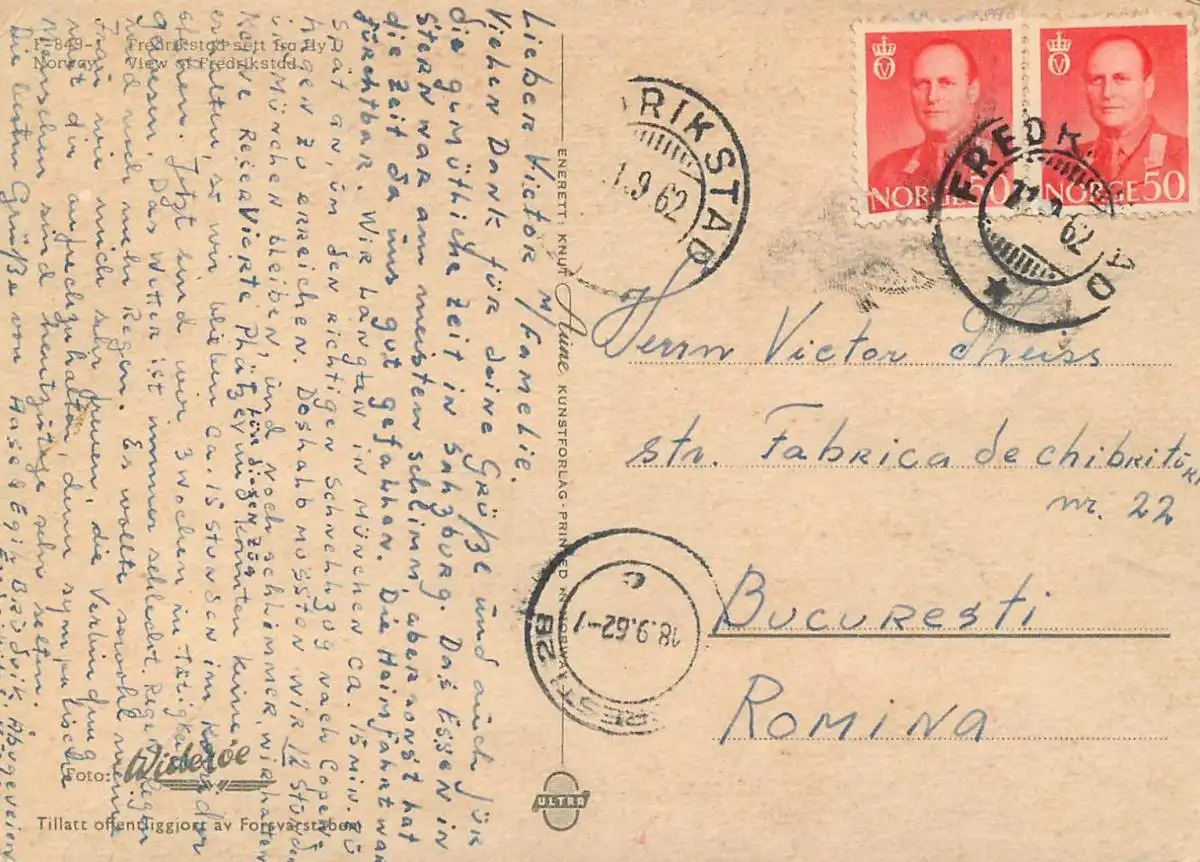 F-849-1 Fredrikstad sett fra fly
Norway. View of Fredrikstad.
Lieber Victor m/Famelie.
Vielen Dank für deine Grüße und auch für
die gemütliche Zeit in Salzburg. Das Essen in
Stern war am meisten schlimm, aber sonst hat
die Zeit da uns gut gefallen. Die Heimfahrt war
fürchtbar. Wir langten in München ca. 15 min. zu
spät an, um den richtigen Schnellzug nach Copen-
hagen zu erreichen. Deshalb mussten wir 12 Stunden
in München bleiben, und noch schlimmer, wir hatten
keine Reservierte Plätze für diesen Zug und konnten keine
erhalten, so wir blieben ca. 15 stunden im Korridor
Jetzt sind wir 3 Wochen in Tätigkeit
gewesen. Das Wetter ist immer schlecht. Regen, Regen
und noch mehr Regen. Es wollte sowohl meine
Frau wie mich sehr freuen, die Verbindung
mit dir aufrechzuhalten, denn sympatische
Menschen sind heutzutage sehr selten.
Die besten Grüße von Hase & Egil Brødvik,
Foto: Widerøe
Tillatt offentliggjort av Forsvarstaben
ENERETT: KNUT Aune KUNSTFORLAG - PRINTED IN NORWAY
ULTRA
NORGE 50
NORGE 50
FREDRIKSTAD
1.9 62
FREDRIKSTAD
9 62
Herrn Victor
str. Fabrica de chibrituri
nr. 22
BUCUREsti
ROMINA
18.9.62-7